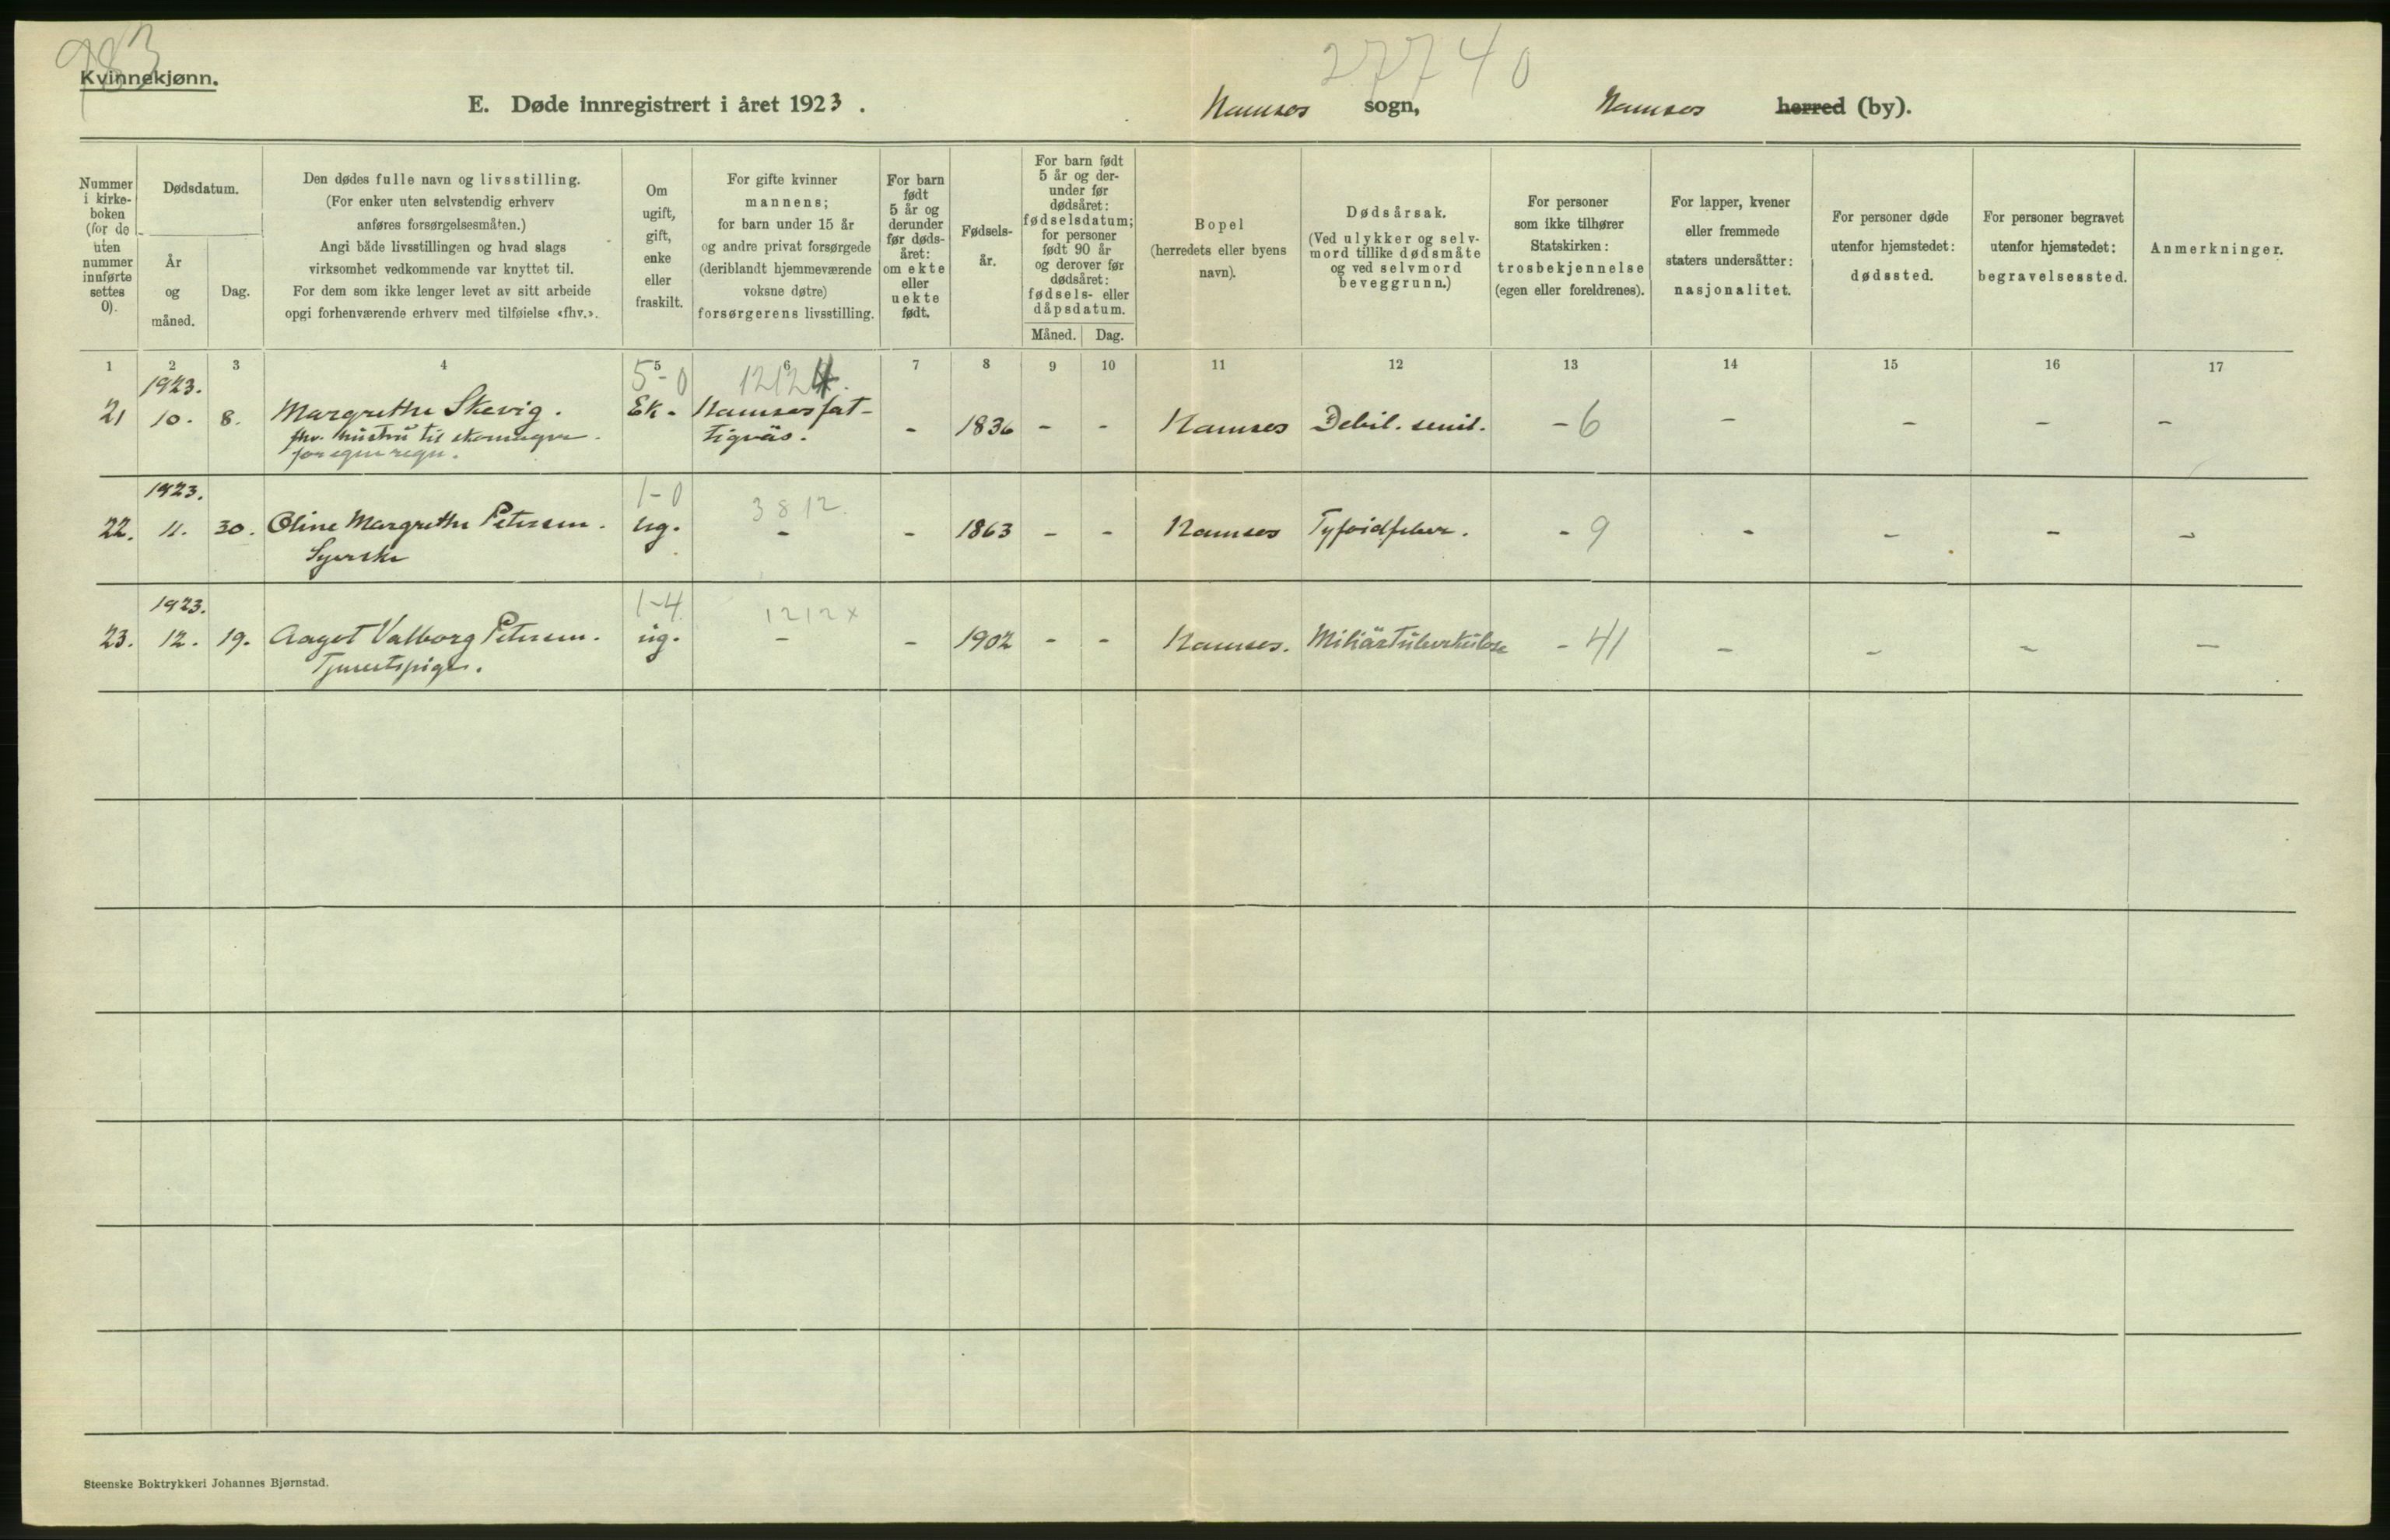 983
27740
Kvinnekjønn.
E. Døde innregistrert i året 1923 . Namsos sogn, Namsos herred (by).
Nummer i kirke- boken (for de uten nummer innførte settes 0).
Dødsdatum.
År og måned.
Dag.
Den dødes fulle navn og livsstilling.
(For enker uten selvstendig erhverv
anføres forsørgelsesmåten.)
Angi både livsstillingen og hvad slags
virksomhet vedkommende var knyttet til.
For dem som ikke lenger levet av sitt arbeide
opgi forhenværende erhverv med tilføielse «fhv.».
Om
ugift,
gift,
enke
eller
fraskilt.
For gifte kvinner
mannens;
for barn under 15 år
og andre privat forsørgede
(deriblandt hjemmeværende
voksne døtre)
forsørgerens livsstilling.
For barn
født
5 år og
derunder
før døds-
året:
om ekte
eller
uekte
født.
Fødsels-
år.
For barn født
5 år og der-
under før
dødsåret:
fødselsdatum;
for personer
født 90 år
og derover før
dødsåret:
fødsels- eller
dåpsdatum.
Måned. Dag.
Bopel
(herredets eller byens
navn).
Dødsårsak.
(Ved ulykker og selv-
mord tillike dødsmåte
og ved selvmord
beveggrunn.)
For personer
som ikke tilhører
Statskirken:
trosbekjennelse
(egen eller foreldrenes).
For lapper, kvener
eller fremmede
staters undersåtter:
nasjonalitet.
For personer døde
utenfor hjemstedet:
dødssted.
For personer begravet
utenfor hjemstedet:
begravelsessted.
Anmerkninger.
1 2 3 4 5 6 7 8 9 10 11 12 13 14 15 16 17
1923. 5-0 12124.
21 10. 8. Margrethe Skevig. Ek. Namsos fat- - 1836 - - Namsos Debil. senil. - 6 - - - -
fhv. hustru til skomager. tigväs.
for egen regn.
1923. 1-0 3812.
22. 11. 30. Oline Margrethe Petersen. ug. - - 1863 - - Namsos Tyfoidfeber. - 9 - - - -
Syerske
1923. 1-4 1212x
23. 12. 19. Aagot Valborg Petersen. ug. - - 1902 - - Namsos. Miliärtuberkulose - 41 - - - -
Tjenestpige.
Steenske Boktrykkeri Johannes Bjørnstad.